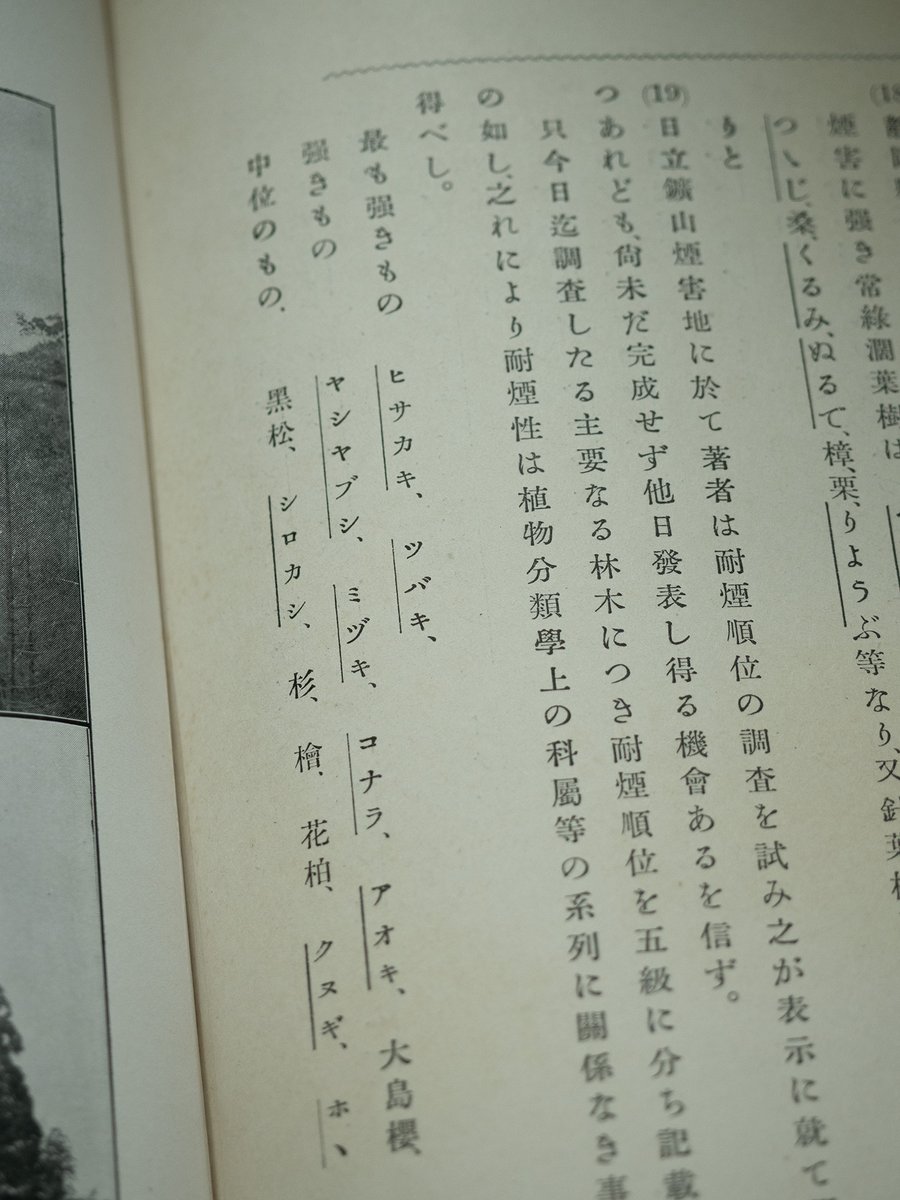 (18
煙害に强き常綠濶葉樹は
つゝじ、桑、くるみ、ぬるで、樟、栗、りようぶ等なり、又針葉
りと
(19) 日立鑛山煙害地に於て著者は耐煙順位の調査を試み之が表示に就て
つあれども、尙未だ完成せず他日發表し得る機會あるを信ず。
只今日迄調査したる主要なる林木につき耐煙順位を五級に分ち記載
の如し、之れにより耐煙性は植物分類學上の科屬等の系列に關係なき事
得べし。
最も强きもの ヒサカキ、ツバキ、
强きもの ヤシヤブシ、ミヅキ、コナラ、アオキ、大島櫻、
中位のもの、 黑松、シロカシ、杉、檜、花柏、クヌギ、ホヽ